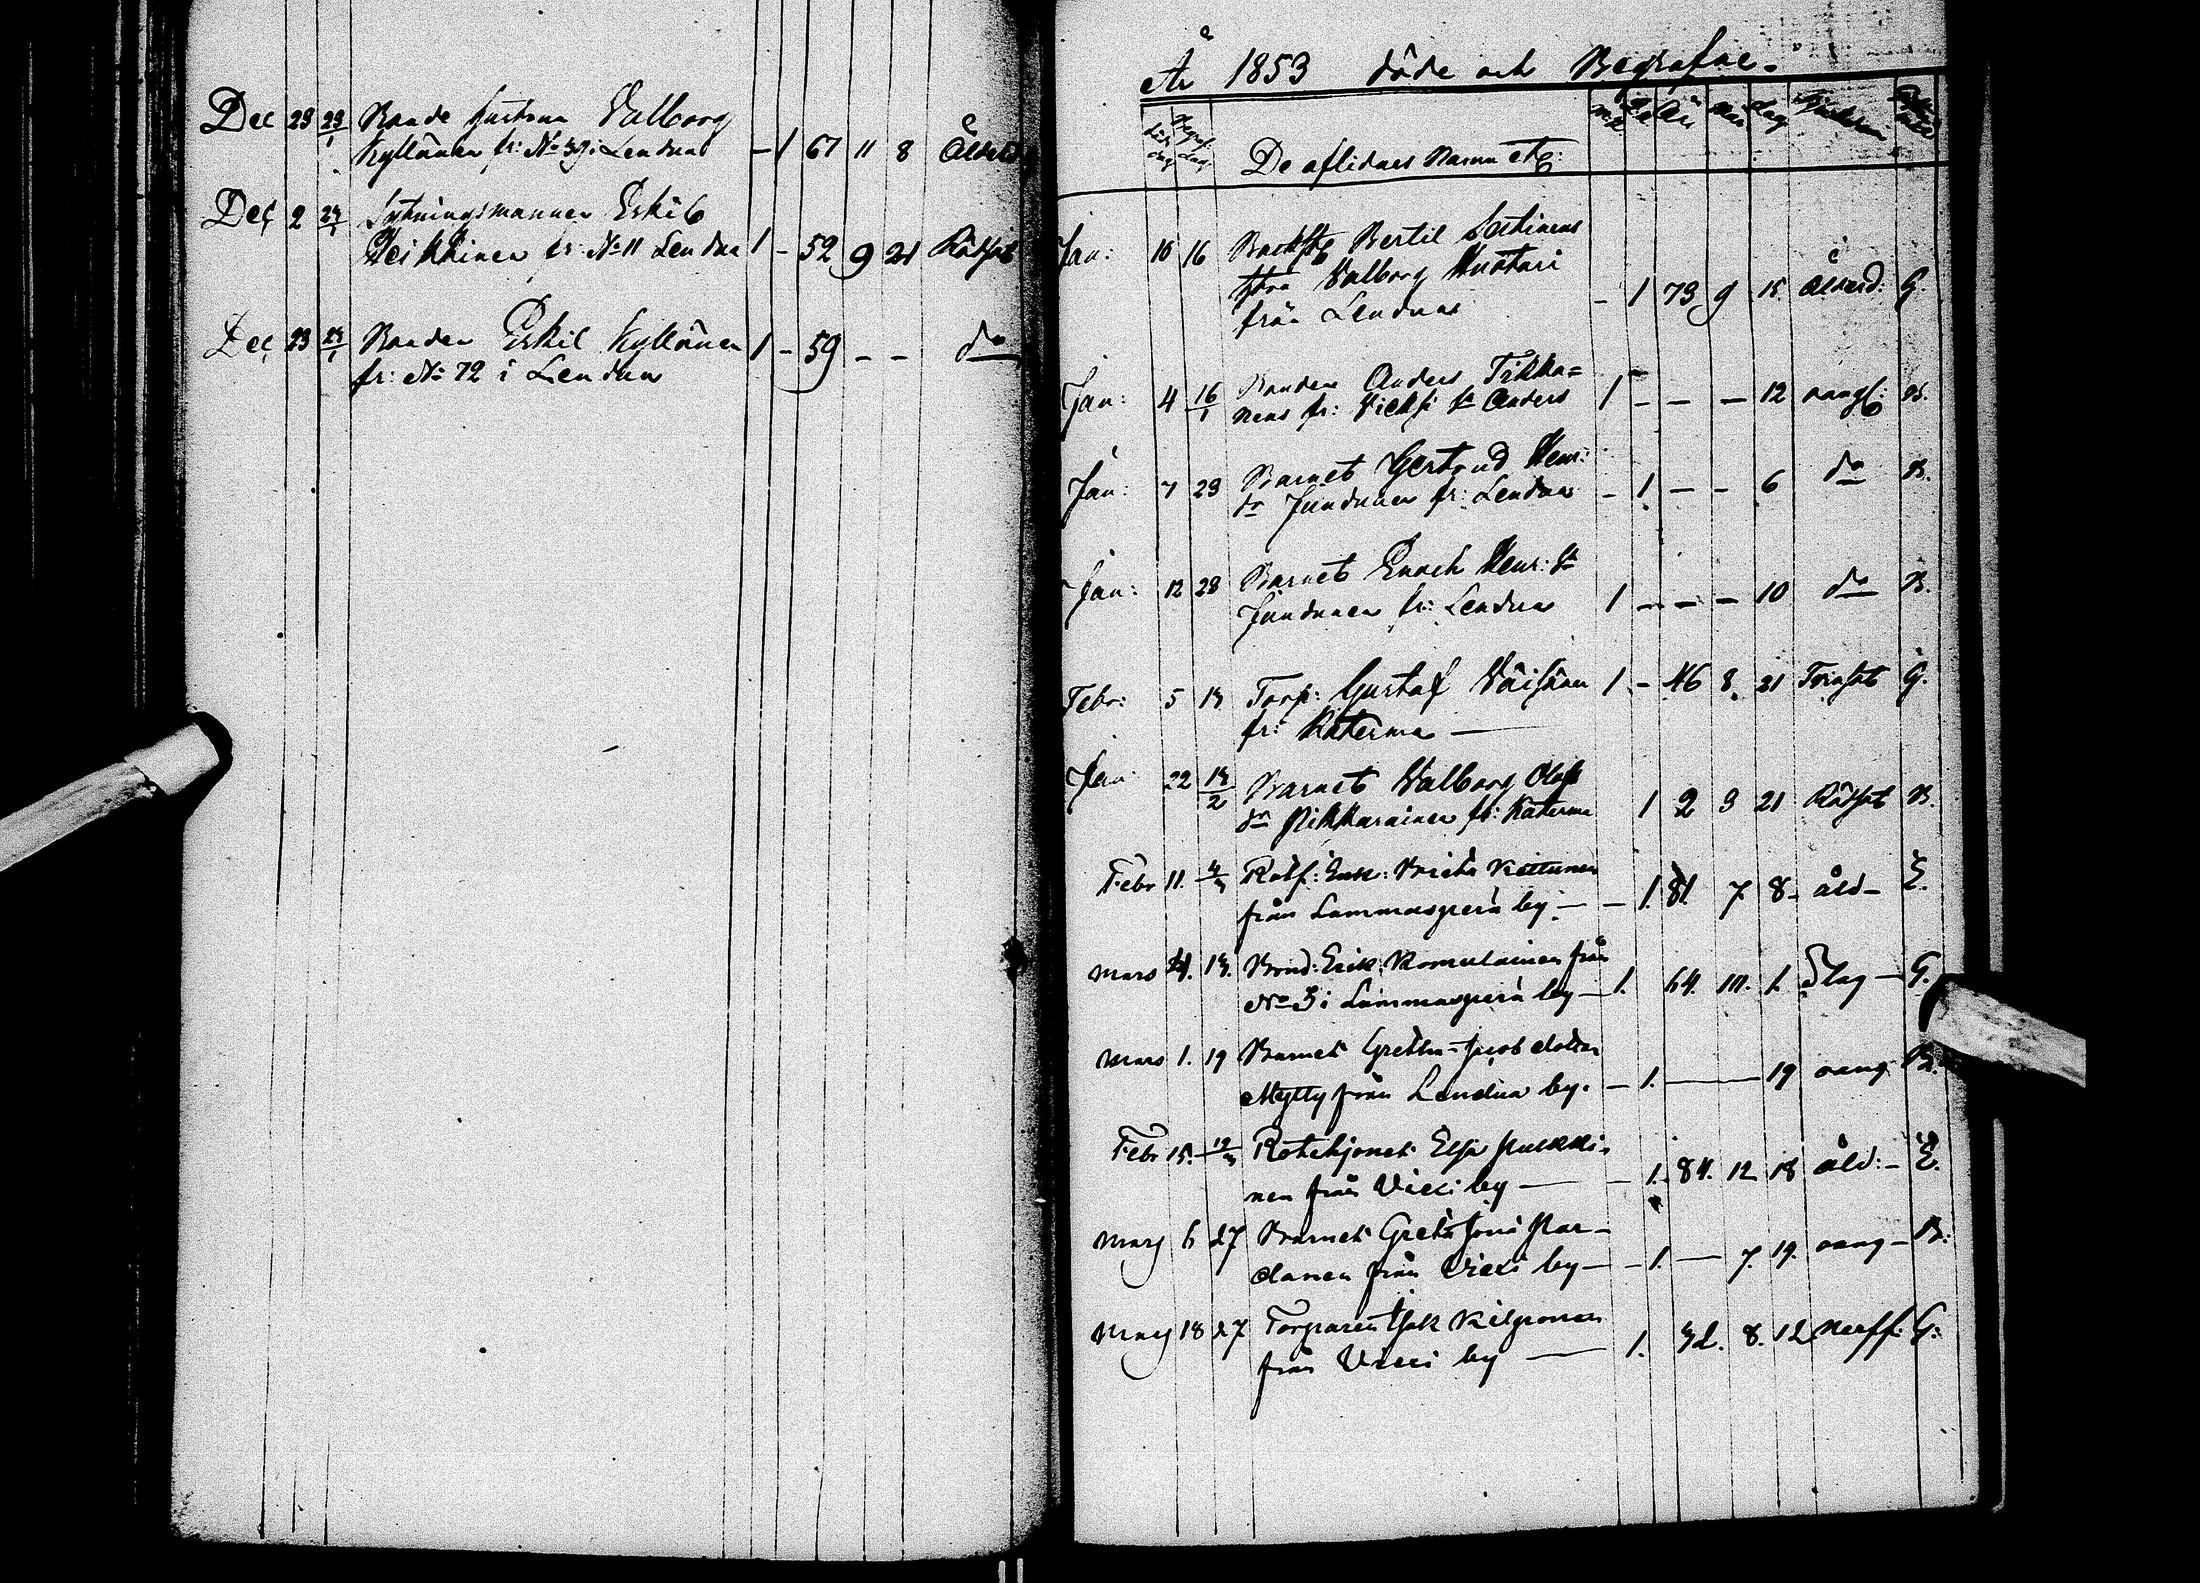 Dec 23 23/1 Bonde hustrun Valborg
Kyllönen fr: No 39 i Lendua - 1 67 11 8 Ålderd
Dec 2 24/1 Sytningsmannen Eskil
Heikkinen fr: No 11 Lendua 1 - 52 9 21 Rötsot
Dec 23 24/1 Bonden Eskil Kyllönen 1 - 59 - - do
fr: No 72 i Lendua
År 1853 döde och Begrafne.
De aflidnes Namn etc:
Jan: 10 16 Bertil
Valborg Huotari
från Lendua - 1 73 9 15 ålderd: G.
Jan: 4 16/1 Bonden Anders Tikka=
nens fr: Viekji sn Anders 1 - - - 12 oangf: B.
Jan: 7 23 Barnet Gertrud Henr:
dr Jundunen fr: Lendua - 1 - - 6 do B.
Jan: 12 23 Barnet Enoch Henr: sn
Jundunen fr: Lendua 1 - - - 10 do B.
Febr: 5 13 Torp: Gustaf Väisänen 1 - 46 8 21 Tvinsot G.
fr: Katerma
Jan 22 13/2 Barnet Valborg Olofs
dr Pikkarainen fr: Katerma 1 2 3 21 Rötsot B.
Febr 11. Rotf: Enk: Brita Kettunen
från Lammasperä by - 1. 81. 7 8 åld- E.
Mars 13. Bond: Erik: Komulainen från
No 3 i Lammasperä by 1. 64. 10. 1. Slag G.
Mars 1. 19 Barnet Gretha Jacobsdotter
Mylly från Lendua by. - 1. 19 oang B.
Febr 15. 19/3 Rotehjonet Elsa Pulkki-
nen från Viexi by - 1. 84. 12 18 åld:- E.
Mars 6 27 Barnet Greta Joh: Par-
danen från Viexi by - 1. 7. 19. oang- B.
Mars 18 27 Torparen Isak Kilponen
från Viexi by 1. 32. 8. 12 Nerff: G: